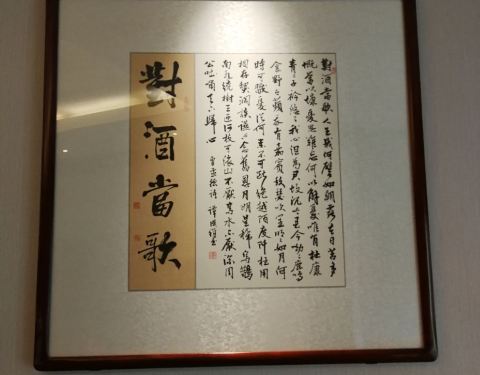 對酒當歌人生幾何譬如朝露去日苦多
慨當以慷憂思難忘何以解憂唯有杜康
青青子衿悠悠我心但為君故沈吟至今呦呦鹿鳴
食野之蘋我有嘉賓鼓瑟吹笙明明如月何
時可掇憂從來不可斷絕越陌度阡枉用
相存契闊談讌心念舊恩月明星稀烏鵲
南飛繞樹三匝何枝可依山不厭高水不厭深周
公吐哺天下歸心
曹孟德詩
對酒當歌